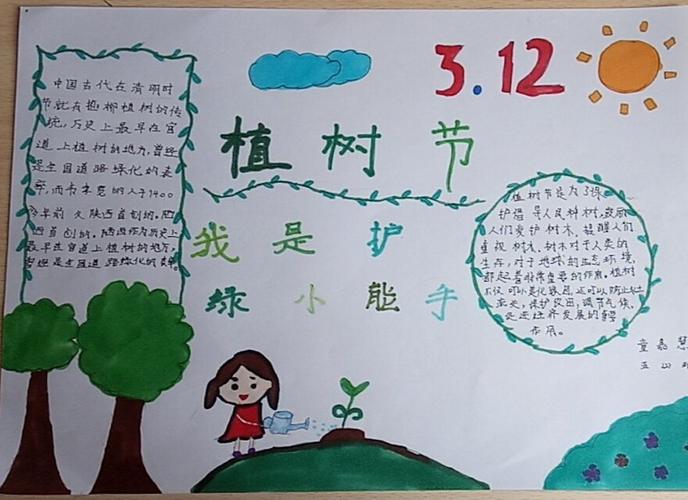 3.12
植树节
我是护
绿小能手
中国古代在清明时
节就有插柳植树的传
统,历史上最早在官
道上植树的地方,曾经
是全国道路绿化的
而韦孝宽的人于1400
多年前 陕西首创的。
首创的。陕西作为历史上
最早在官道上植树的地方,
是全国道路绿化的
植树节是为了保
护倡导人民种树,鼓励
人们爱护树木,提醒人们
重视树木。树木对于人类的
生存,对于地球的生态环境,
都起着非常重要的作用。植树
不仅可以美化家园,还可以防止
保护农田,调节气候,
是促进经济发展的重要
作用。
童嘉慧
五